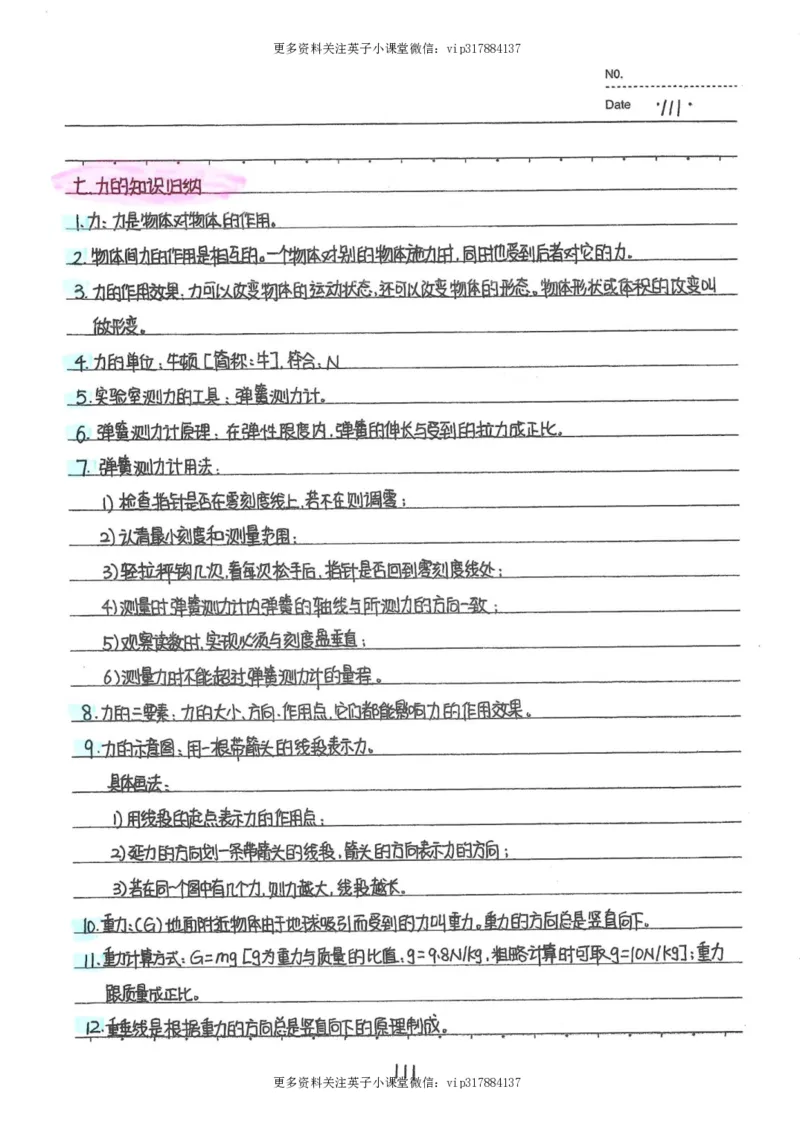 更多资料关注英子小课堂微信：vip317884137
NO.
Date ·111·
七.力的知识归纳
1.力：力是物体对物体的作用。
2.物体间力的作用是相互的。一个物体对别的物体施力时,同时也受到后者对它的力。
3.力的作用效果:力可以改变物体的运动状态,还可以改变物体的形态。物体形状或体积的改变叫
做形变。
4.力的单位：牛顿[简称：牛],符合：N
5.实验室测力的工具：弹簧测力计。
6.弹簧测力计原理：在弹性限度内,弹簧的伸长与受到的拉力成正比。
7.弹簧测力计用法：
1)检查指针是否在零刻度线上,若不在则调零；
2)认清最小刻度和测量范围；
3)轻拉秤钩几次,看每次松手后,指针是否回到零刻度线处；
4)测量时弹簧测力计内弹簧的轴线与所测力的方向一致；
5)观察读数时,实现必须与刻度盘垂直；
6)测量力时不能超过弹簧测力计的量程。
8.力的三要素：力的大小、方向、作用点,它们都能影响力的作用效果。
9.力的示意图：用一根带箭头的线段表示力。
具体画法：
1)用线段的起点表示力的作用点；
2)延力的方向划一条带箭头的线段,箭头的方向表示力的方向；
3)若在同一个图中有几个力,则力越大,线段越长。
10.重力：(G)地面附近物体由于地球吸引而受到的力叫重力。重力的方向总是竖直向下。
11.重力计算方式：G=mg[g为重力与质量的比值；g=9.8N/kg,粗略计算时可取g=10N/kg]；重力
跟质量成正比。
12.重垂线是根据重力的方向总是竖直向下的原理制成。
111
更多资料关注英子小课堂微信：vip317884137